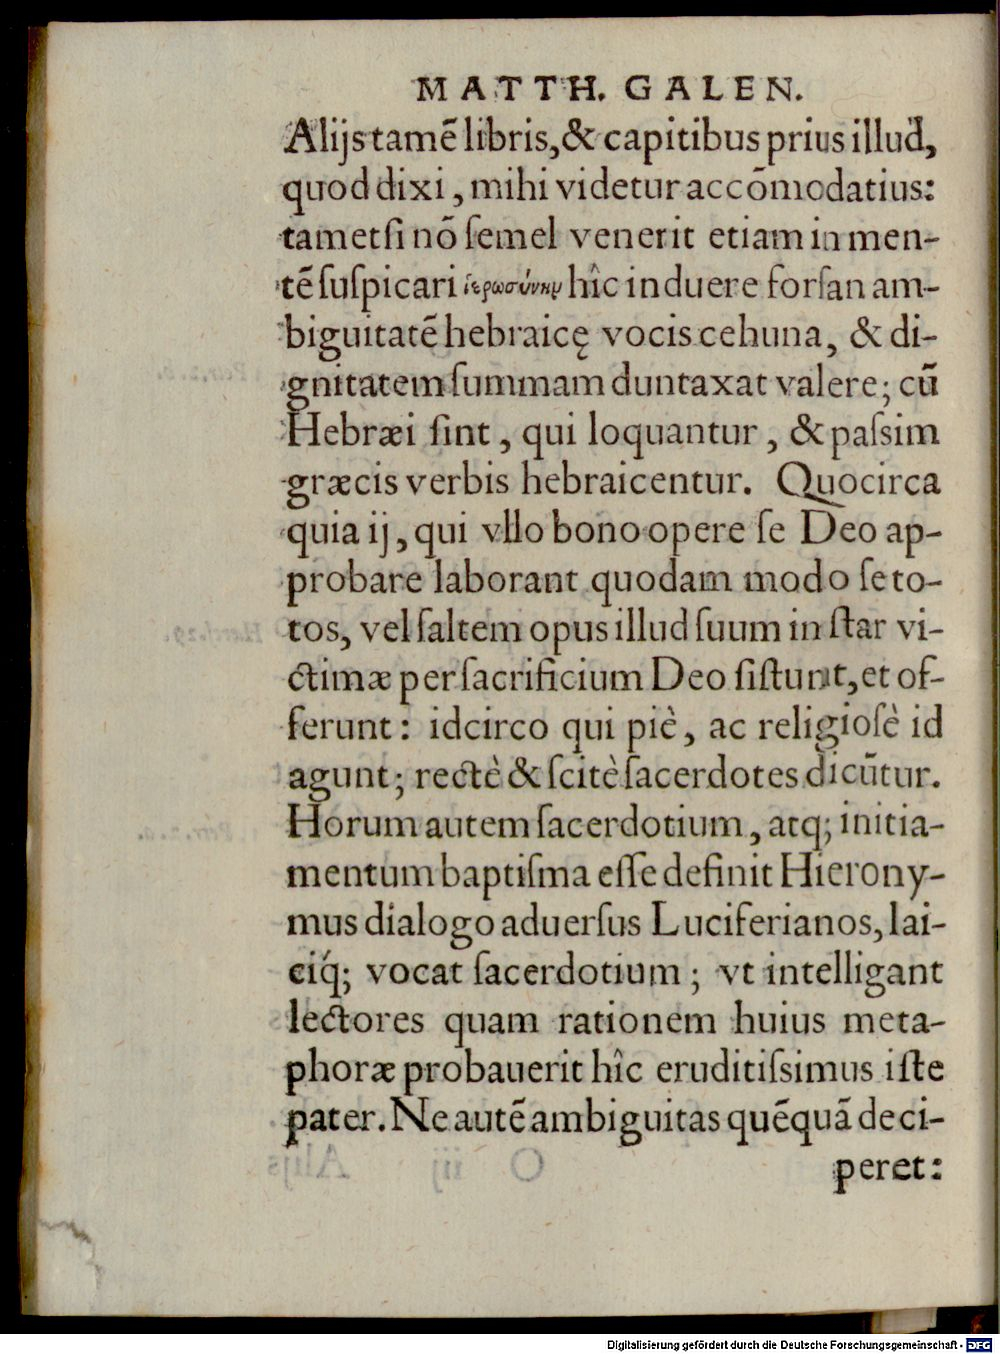 MATTH. GALEN.
Alijs tamē libris, & capitibus prius illud,
quod dixi, mihi videtur accōmodatius:
tametſi nō ſemel venerit etiam in men-
tē ſuſpicari ἱερωσύνην hîc induere forſan am-
biguitatē hebraicę vocis cehuna, & di-
gnitatem ſummam duntaxat valere; cū
Hebræi ſint, qui loquantur, & paſsim
græcis verbis hebraicentur. Quocirca
quia ij, qui vllo bono opere ſe Deo ap-
probare laborant quodam modo ſe to-
tos, vel ſaltem opus illud ſuum in ſtar vi-
ctimæ per ſacrificium Deo ſiſtunt, et of-
ferunt: idcirco qui piè, ac religioſè id
agunt; rectè & ſcitè ſacerdotes dicūtur.
Horum autem ſacerdotium, atq; initia-
mentum baptiſma eſſe definit Hierony-
mus dialogo aduerſus Luciferianos, lai-
ciq́; vocat ſacerdotium; vt intelligant
lectores quam rationem huius meta-
phoræ probauerit hîc eruditiſsimus iſte
pater. Ne autē ambiguitas quēquā deci-
peret:
Digitalisierung gefördert durch die Deutsche Forschungsgemeinschaft - DFG